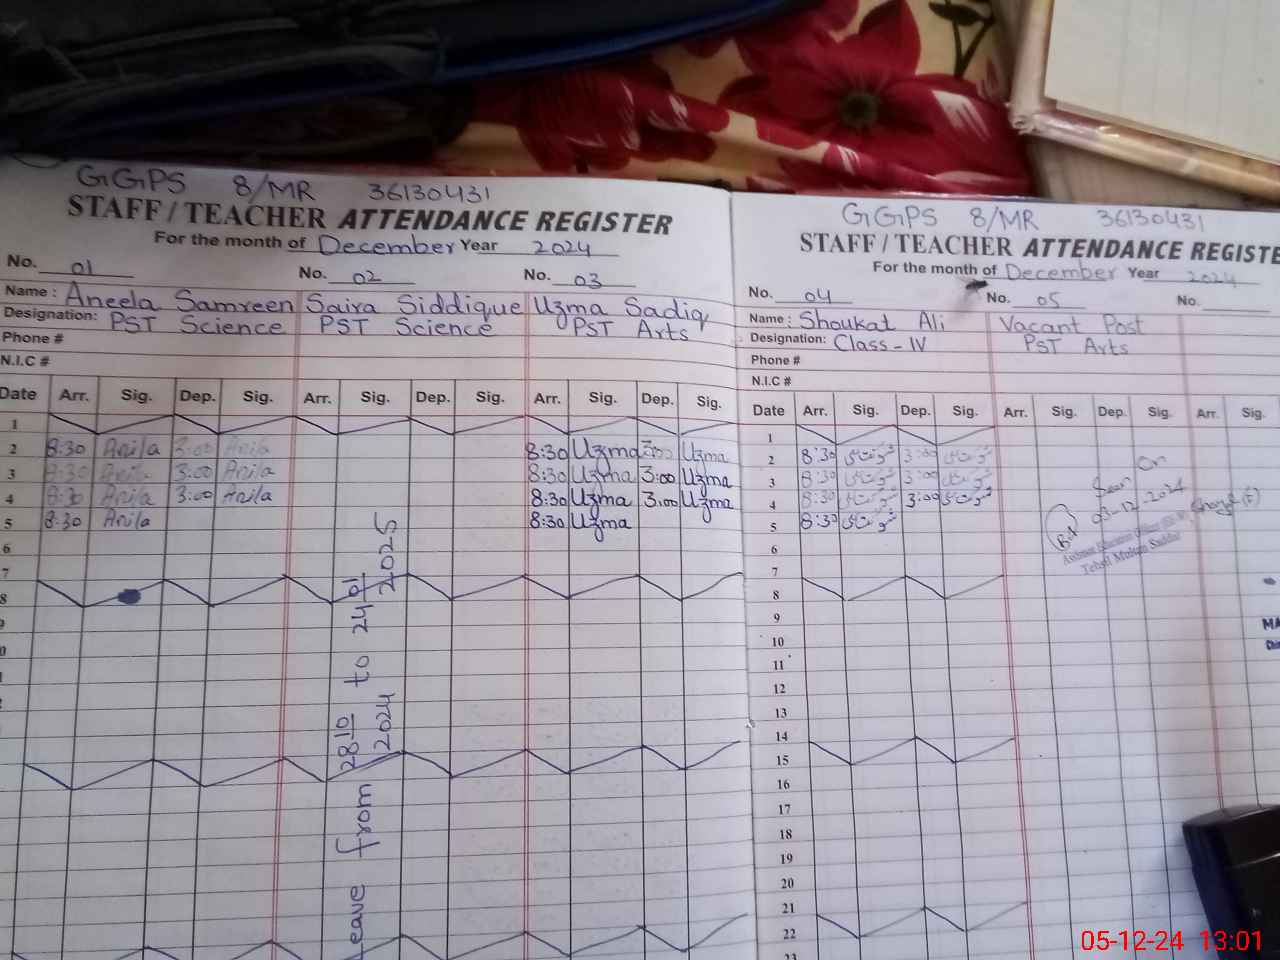 GGPS 8/MR 36130431
STAFF / TEACHER ATTENDANCE REGISTER
For the month of December Year 2024
No. 01 No. 02 No. 03
Name : Aneela Samreen Saira Siddique Uzma Sadiq
Designation: PST Science PST Science PST Arts
Phone #
N.I.C #
Date Arr. Sig. Dep. Sig. Arr. Sig. Dep. Sig. Arr. Sig. Dep. Sig.
1
2 8:30 Anila 3:00 Anila 8:30 Uzma 3:00 Uzma
3 8:30 Anila 3:00 Anila 8:30 Uzma 3:00 Uzma
4 8:30 Anila 3:00 Anila 8:30 Uzma 3:00 Uzma
5 8:30 Anila 8:30 Uzma
6
7
8
eave from 28/10 2024 to 24/01 2025
GGPS 8/MR 36130431
STAFF / TEACHER ATTENDANCE REGISTE
For the month of December Year 2024
No. 04 No. 05 No.
Name : Shoukat Ali Vacant Post
Designation: Class-IV PST Arts
Phone #
N.I.C #
Date Arr. Sig. Dep. Sig. Arr. Sig. Dep. Sig. Arr. Sig.
1
2 8:30 شوکت علی 3:00 شوکت علی
3 8:30 شوکت علی 3:00 شوکت علی
4 8:30 شوکت علی 3:00 شوکت علی
5 8:30 شوکت علی
6
7
8
9
10
11
12
13
14
15
16
17
18
19
20
21
22
23
Seen on
03-12-2024
Tehsil Multan Saddar
MA
05-12-24 13:01